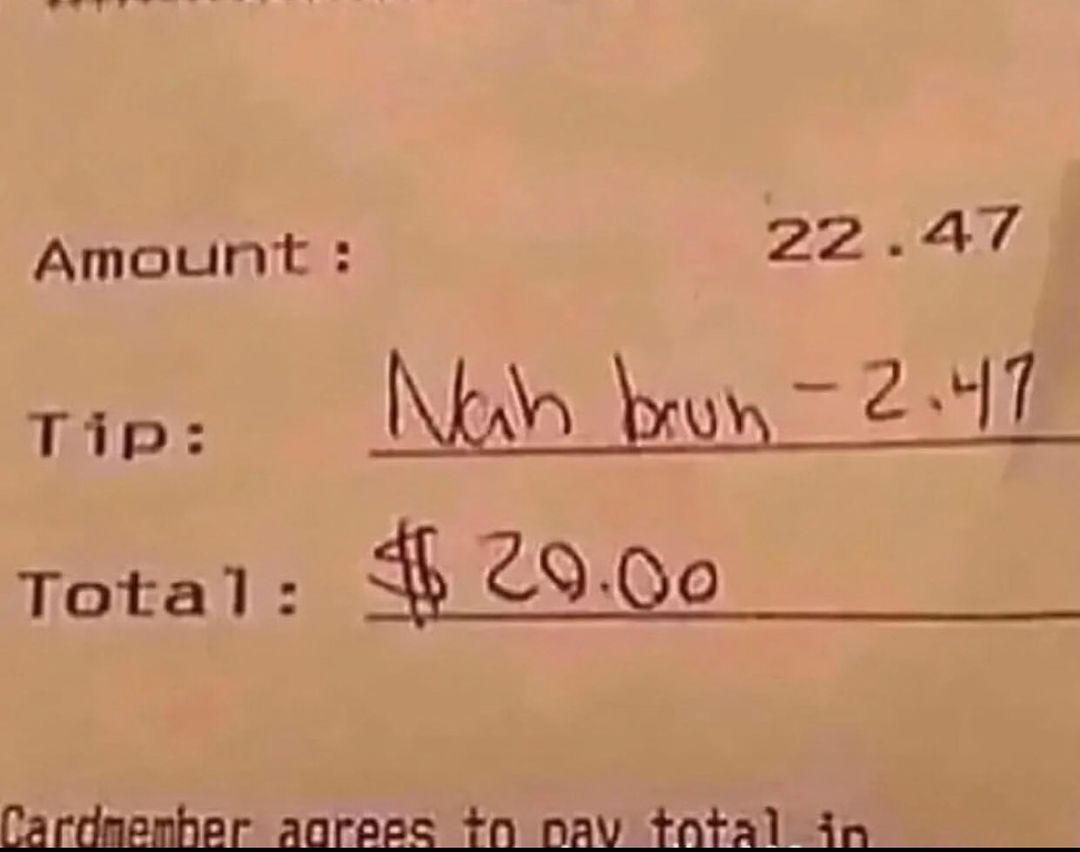 Amount: 22.47
Tip: Nah bruh -2.47
Total: $20.00
Cardmember agrees to pay total in